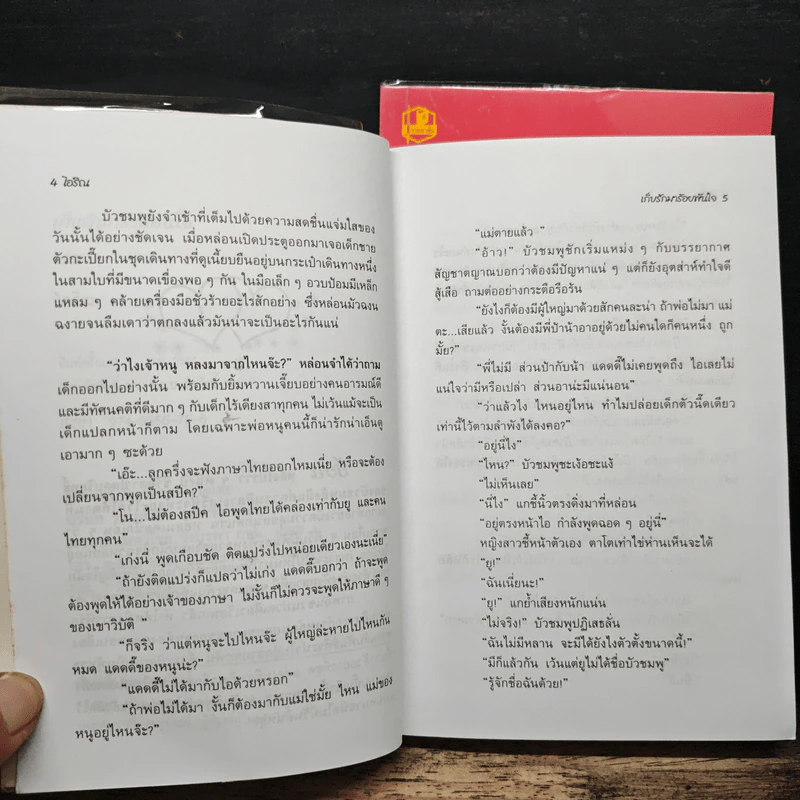 4 ไอริณ
บัวชมพูยังจำเช้าที่เต็มไปด้วยความสดชื่นแจ่มใสของ
วันนั้นได้อย่างชัดเจน เมื่อหล่อนเปิดประตูออกมาเจอเด็กชาย
ตัวกะเปี๊ยกในชุดเดินทางที่ดูเนี้ยบยืนอยู่บนกระเป๋าเดินทางหนึ่ง
ในสามใบที่มีขนาดเขื่องพอ ๆ กัน ในมือเล็ก ๆ อวบป้อมมีเหล็ก
แหลม ๆ คล้ายเครื่องมือชั่วร้ายอะไรสักอย่าง ซึ่งหล่อนมัวฉงน
ฉงายจนลืมเดาว่าตกลงแล้วมันน่าจะเป็นอะไรกันแน่
“ว่าไงเจ้าหนู หลงมาจากไหนจ๊ะ?” หล่อนจำได้ว่าถาม
เด็กออกไปอย่างนั้น พร้อมกับยิ้มหวานเจี๊ยบอย่างคนอารมณ์ดี
และมีทัศนคติที่ดีมาก ๆ กับเด็กไร้เดียงสาทุกคน ไม่เว้นแม้จะเป็น
เด็กแปลกหน้าก็ตาม โดยเฉพาะพ่อหนูคนนี้ก็น่ารักน่าเอ็นดู
เอามาก ๆ ซะด้วย
“เอ๊ะ...ลูกครึ่งจะฟังภาษาไทยออกไหมเนี่ย หรือจะต้อง
เปลี่ยนจากพูดเป็นสปีค?”
“โน...ไม่ต้องสปีค ไอพูดไทยได้คล่องเท่ากับยู และคน
ไทยทุกคน”
“เก่งนี่ พูดเกือบชัด ติดแปร่งไปหน่อยเดียวเองนะเนี่ย”
“ถ้ายังติดแปร่งก็แปลว่าไม่เก่ง แดดดี๊บอกว่า ถ้าจะพูด
ต้องพูดให้ได้อย่างเจ้าของภาษา ไม่งั้นก็ไม่ควรจะพูดให้ภาษาดี ๆ
ของเขาวิบัติ ”
“ก็จริง ว่าแต่หนูจะไปไหนจ๊ะ ผู้ใหญ่ล่ะหายไปไหนกัน
หมด แดดดี๊ของหนูน่ะ?”
“แดดดี๊ไม่ได้มากับไอด้วยหรอก”
“ถ้าพ่อไม่ได้มา งั้นก็ต้องมากับแม่ใช่มั้ย ไหน แม่ของ
หนูอยู่ไหนจ๊ะ?”
เก็บรักมาร้อยพันใจ 5
“แม่ตายแล้ว ”
“อ้าว!” บัวชมพูชักเริ่มแหม่ง ๆ กับบรรยากาศ
สัญชาตญาณบอกว่าต้องมีปัญหาแน่ ๆ แต่ก็ยังอุตส่าห์ทำใจดี
สู้เสือ ถามต่ออย่างกระตือรือร้น
“ยังไงก็ต้องมีผู้ใหญ่มาด้วยสักคนละน่า ถ้าพ่อไม่มา แม่
ตะ...เสียแล้ว งั้นต้องมีพี่ป้าน้าอาอยู่ด้วยไม่คนใดก็คนหนึ่ง ถูก
มั้ย?”
“พี่ไม่มี ส่วนป้ากับน้า แดดดี๊ไม่เคยพูดถึง ไอเลยไม่
แน่ใจว่ามีหรือเปล่า ส่วนอาน่ะมีแน่นอน”
“ว่าแล้วไง ไหนอยู่ไหน ทำไมปล่อยเด็กตัวนี๊ดเดียว
เท่านี้ไว้ตามลำพังได้ลงคอ?”
“อยู่นี่ไง”
“ไหน?” บัวชมพูชะเง้อชะแง้
“ไม่เห็นเลย”
“นี่ไง” แกชี้นิ้วตรงดิ่งมาที่หล่อน
“อยู่ตรงหน้าไอ กำลังพูดฉอด ๆ อยู่นี่”
หญิงสาวชี้หน้าตัวเอง ตาโตเท่าไข่ห่านเห็นจะได้
“ยู!”
“ฉันเนี่ยนะ!”
“ยู!” แกย้ำเสียงหนักแน่น
“ไม่จริง!” บัวชมพูปฏิเสธลั่น
“ฉันไม่มีหลาน จะมีได้ยังไงตัวตั้งขนาดนี้!”
“มีก็แล้วกัน เว้นแต่ยูไม่ได้ชื่อบัวชมพู”
“รู้จักชื่อฉันด้วย!”